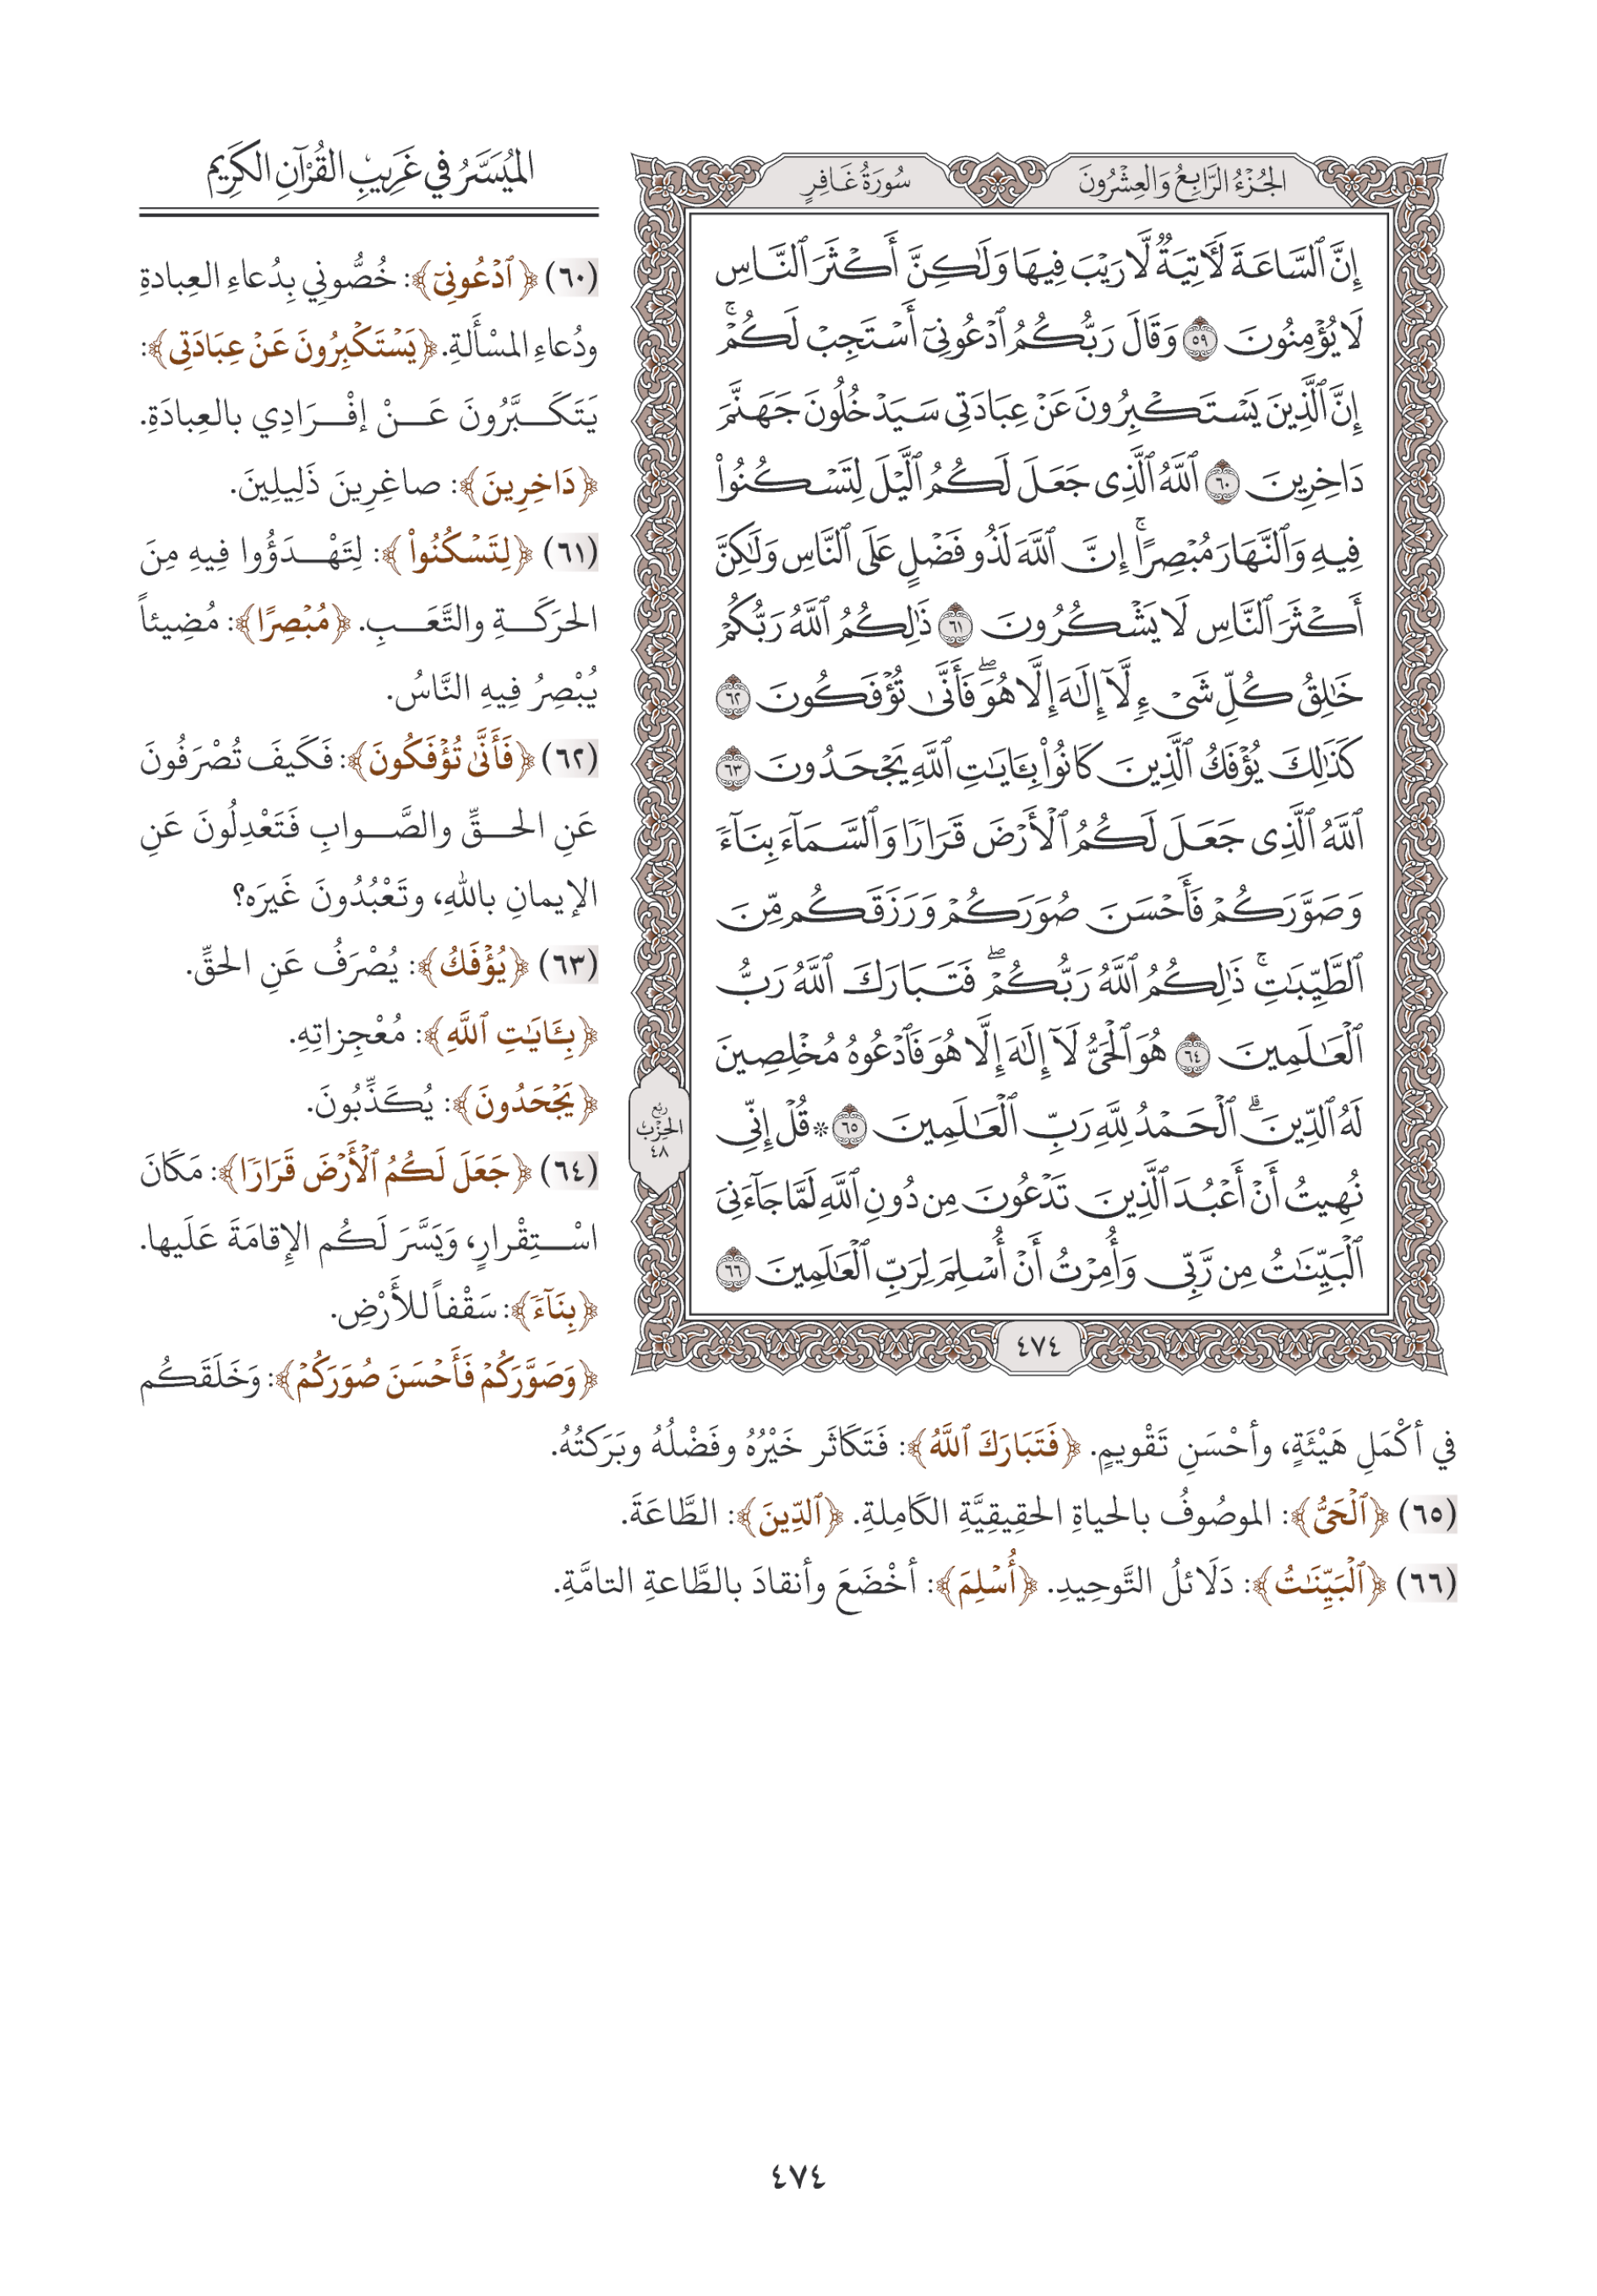 الجُزْءُ الرَّابِعُ وَالعِشْرُونَ
سُورَةُ غَافِرٍ
إِنَّ ٱلسَّاعَةَ لَأٓتِيَةٌ لَّا رَيْبَ فِيهَا وَلَٰكِنَّ أَكْثَرَ ٱلنَّاسِ
لَا يُؤْمِنُونَ ٥٩ وَقَالَ رَبُّكُمُ ٱدْعُونِىٓ أَسْتَجِبْ لَكُمْ ۚ
إِنَّ ٱلَّذِينَ يَسْتَكْبِرُونَ عَنْ عِبَادَتِى سَيَدْخُلُونَ جَهَنَّمَ
دَاخِرِينَ ٦٠ ٱللَّهُ ٱلَّذِى جَعَلَ لَكُمُ ٱلَّيْلَ لِتَسْكُنُوا۟
فِيهِ وَٱلنَّهَارَ مُبْصِرًا ۚ إِنَّ ٱللَّهَ لَذُو فَضْلٍ عَلَى ٱلنَّاسِ وَلَٰكِنَّ
أَكْثَرَ ٱلنَّاسِ لَا يَشْكُرُونَ ٦١ ذَٰلِكُمُ ٱللَّهُ رَبُّكُمْ
خَٰلِقُ كُلِّ شَىْءٍ لَّآ إِلَٰهَ إِلَّا هُوَ ۖ فَأَنَّىٰ تُؤْفَكُونَ ٦٢
كَذَٰلِكَ يُؤْفَكُ ٱلَّذِينَ كَانُوا۟ بِـَٔايَٰتِ ٱللَّهِ يَجْحَدُونَ ٦٣
ٱللَّهُ ٱلَّذِى جَعَلَ لَكُمُ ٱلْأَرْضَ قَرَارًا وَٱلسَّمَآءَ بِنَآءً
وَصَوَّرَكُمْ فَأَحْسَنَ صُوَرَكُمْ وَرَزَقَكُم مِّنَ
ٱلطَّيِّبَٰتِ ۚ ذَٰلِكُمُ ٱللَّهُ رَبُّكُمْ ۖ فَتَبَارَكَ ٱللَّهُ رَبُّ
ٱلْعَٰلَمِينَ ٦٤ هُوَ ٱلْحَىُّ لَآ إِلَٰهَ إِلَّا هُوَ فَٱدْعُوهُ مُخْلِصِينَ
لَهُ ٱلدِّينَ ۗ ٱلْحَمْدُ لِلَّهِ رَبِّ ٱلْعَٰلَمِينَ ٦٥ * قُلْ إِنِّى
نُهِيتُ أَنْ أَعْبُدَ ٱلَّذِينَ تَدْعُونَ مِن دُونِ ٱللَّهِ لَمَّا جَآءَنِىَ
ٱلْبَيِّنَٰتُ مِن رَّبِّى وَأُمِرْتُ أَنْ أُسْلِمَ لِرَبِّ ٱلْعَٰلَمِينَ ٦٦
ربع
الحِزْب
٤٨
٤٧٤
المُيَسَّرُ في غَرِيبِ القُرْآنِ الكَرِيم
(٦٠) ﴿ٱدْعُونِىٓ﴾: خُصُّونِي بِدُعاءِ العِبادةِ
ودُعاءِ المسْأَلةِ. ﴿يَسْتَكْبِرُونَ عَنْ عِبَادَتِى﴾:
يَتَكَـبَّرُونَ عَـنْ إفْـرَادِي بالعِبادَةِ.
﴿دَاخِرِينَ﴾: صاغِرِينَ ذَلِيلِينَ.
(٦١) ﴿لِتَسْكُنُوا۟﴾: لِتَهْـدَؤُوا فِيهِ مِنَ
الحرَكَـةِ والتَّعَـبِ. ﴿مُبْصِرًا﴾: مُضِيئاً
يُبْصِرُ فِيهِ النَّاسُ.
(٦٢) ﴿فَأَنَّىٰ تُؤْفَكُونَ﴾: فَكَيفَ تُصْرَفُونَ
عَنِ الحـقِّ والصَّـوابِ فَتَعْدِلُونَ عَنِ
الإيمانِ باللهِ، وتَعْبُدُونَ غَيرَه؟
(٦٣) ﴿يُؤْفَكُ﴾: يُصْرَفُ عَنِ الحقِّ.
﴿بِـَٔايَٰتِ ٱللَّهِ﴾: مُعْجِزاتِهِ.
﴿يَجْحَدُونَ﴾: يُكَذِّبُونَ.
(٦٤) ﴿جَعَلَ لَكُمُ ٱلْأَرْضَ قَرَارًا﴾: مَكَانَ
اسْـتِقْرارٍ، وَيَسَّرَ لَكُم الإِقامَةَ عَلَيها.
﴿بِنَآءً﴾: سَقْفاً للأَرْضِ.
﴿وَصَوَّرَكُمْ فَأَحْسَنَ صُوَرَكُمْ﴾: وَخَلَقَكُم
في أكْمَلِ هَيْئَةٍ، وأحْسَنِ تَقْويمٍ. ﴿فَتَبَارَكَ ٱللَّهُ﴾: فَتَكَاثَر خَيْرُهُ وفَضْلُهُ وبَرَكتُهُ.
(٦٥) ﴿ٱلْحَىُّ﴾: الموصُوفُ بالحياةِ الحقِيقِيَّةِ الكَامِلةِ. ﴿ٱلدِّينَ﴾: الطَّاعَةَ.
(٦٦) ﴿ٱلْبَيِّنَٰتُ﴾: دَلَائلُ التَّوحِيدِ. ﴿أُسْلِمَ﴾: أخْضَعَ وأنقادَ بالطَّاعةِ التامَّةِ.
٤٧٤